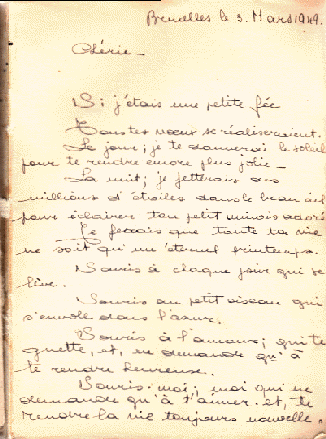 Bruxelles le 3. Mars 1949.
Chérie -
Si j'étais une petite fée
Tous tes vœux se réaliseraient.
Le jour; je te donnerai le soleil
pour te rendre encore plus jolie -
La nuit; je jetterais des
millions d'étoiles dans le beau ciel
pour éclairer ton petit minois adoré
Je ferais que toute ta vie
ne soit qu'un éternel printemps.
Souris à chaque jour qui se
lève..
Souris au petit oiseau qui
s'envole dans l'azur.
Souris à l'amour; qui te
guette, et, ne demande qu'à
te rendre heureuse.
Souris-moi; moi qui ne
demande qu'à t'aimer. et, te
rendre la vie toujours nouvelle.